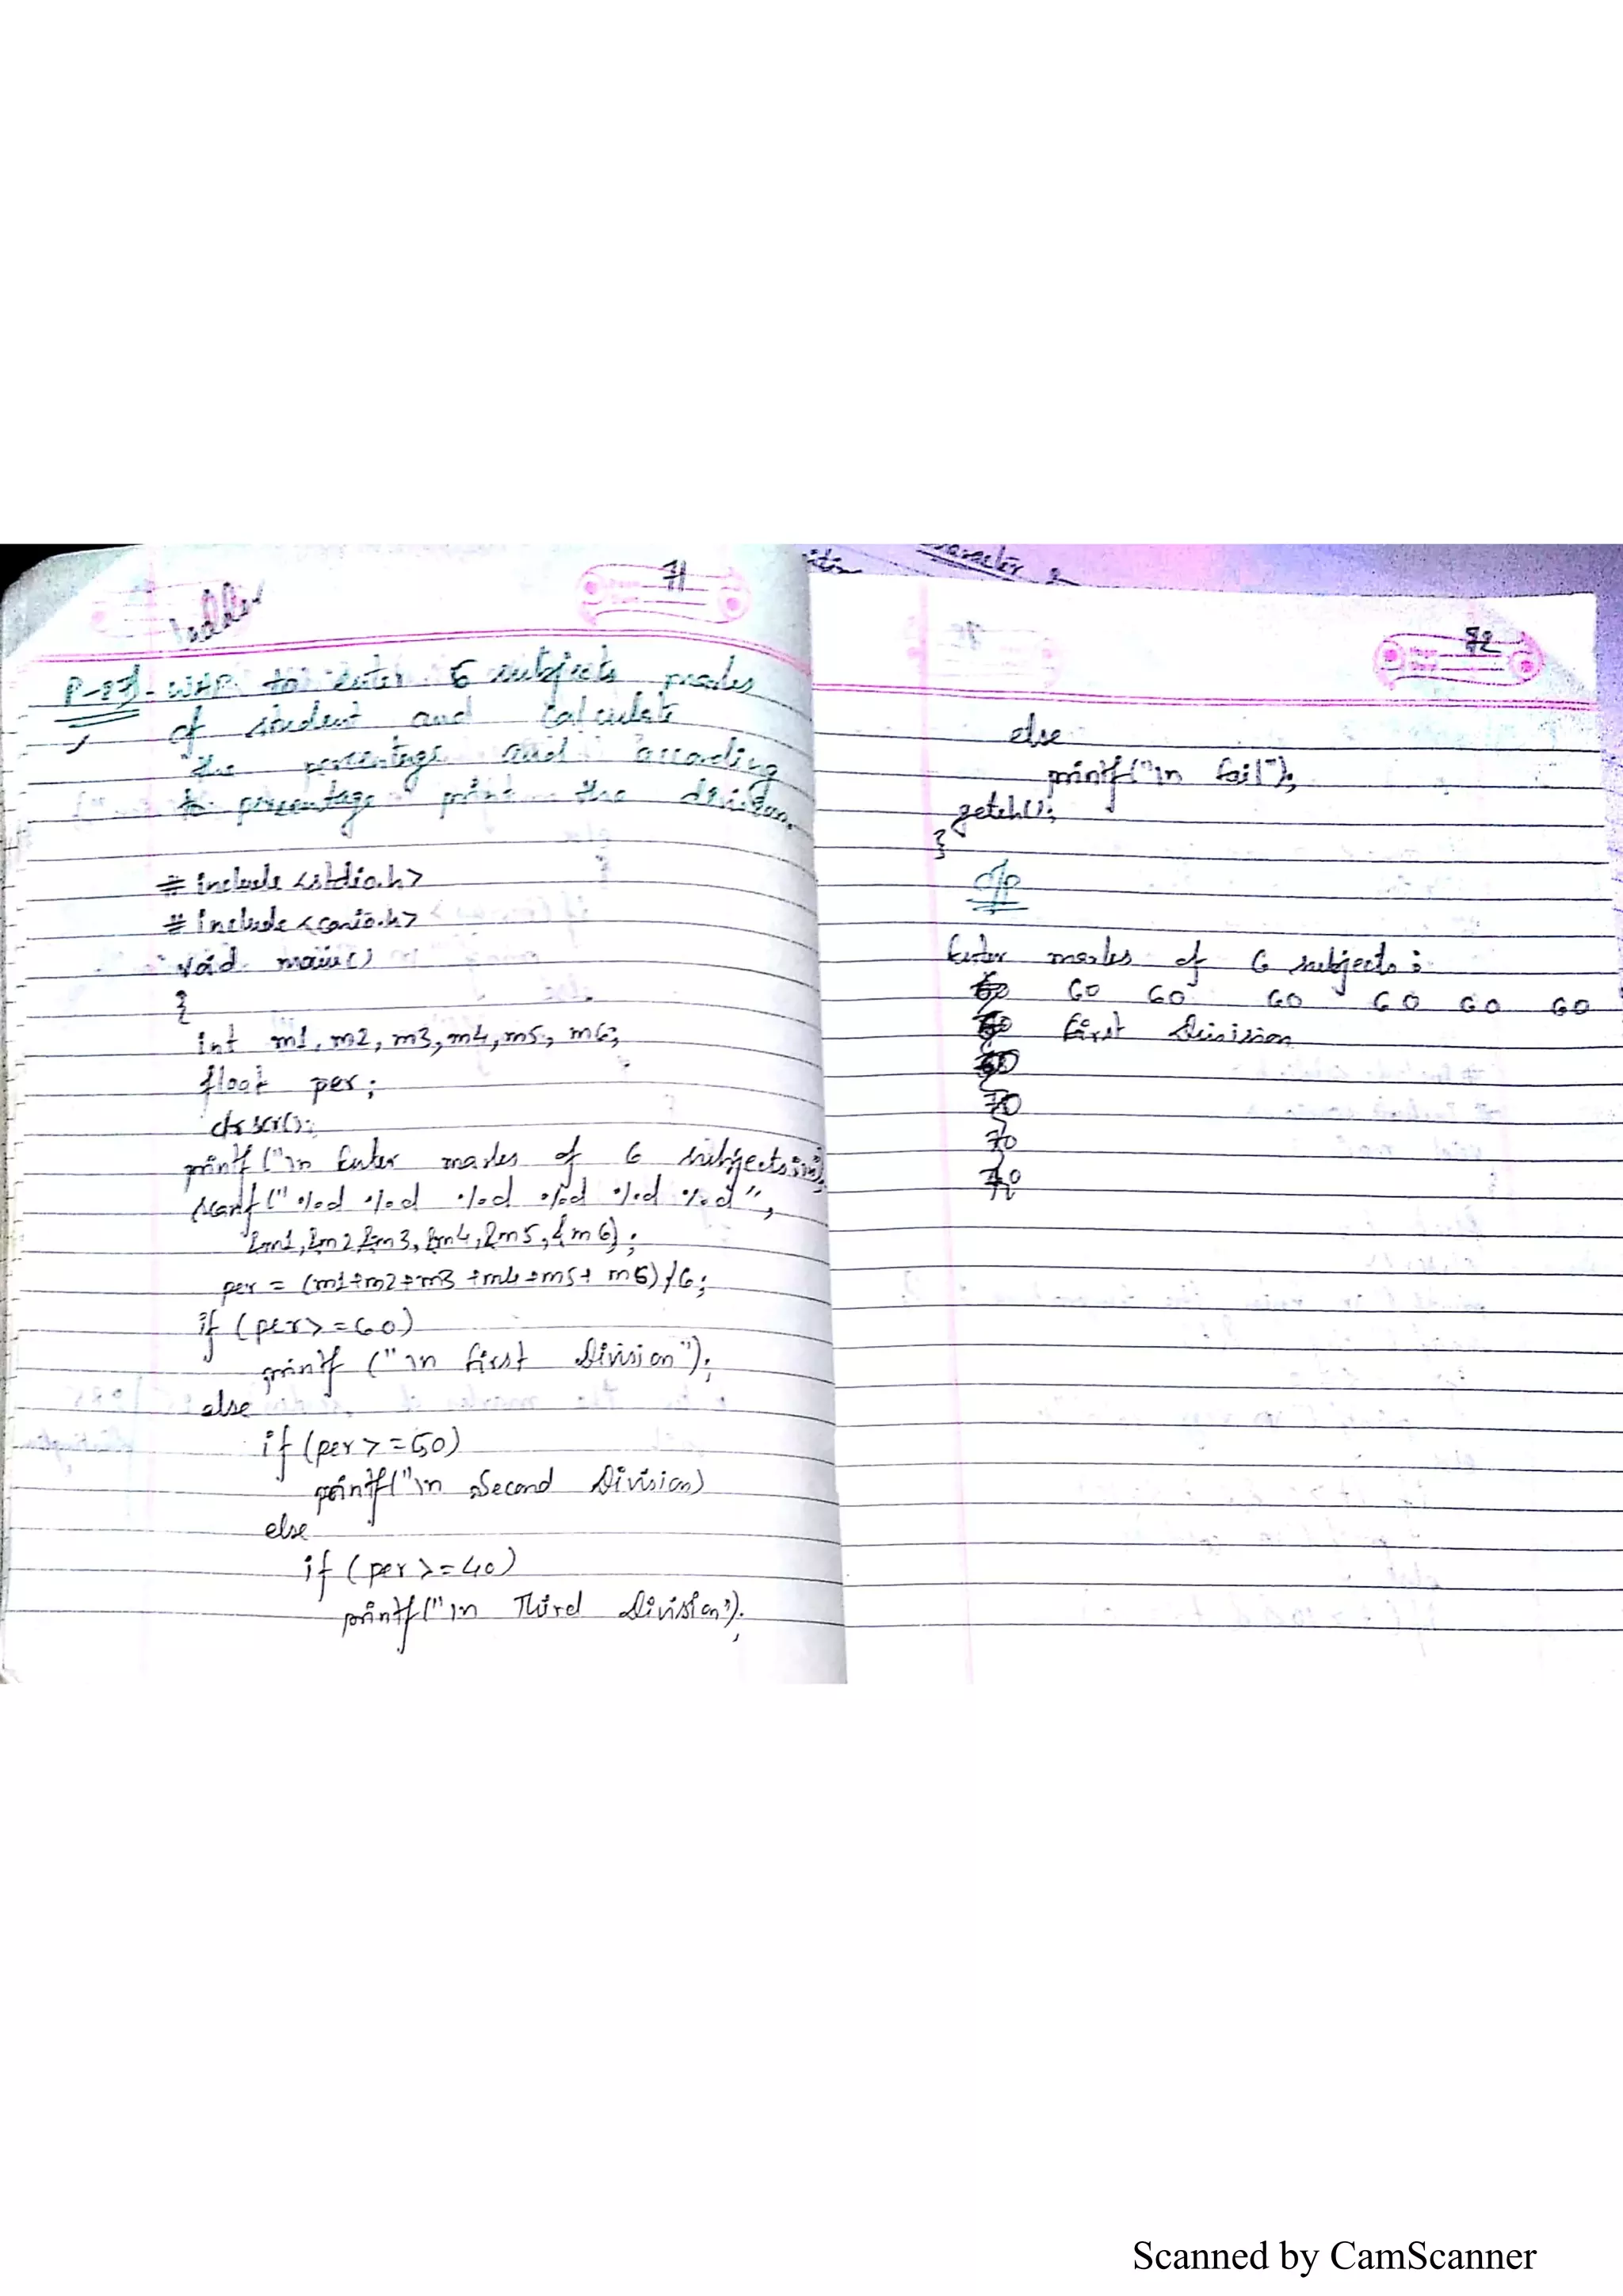 ladder
71
P-27)- WAP to enter 6 subjects marks
of student and calculate
the percentage and according
to percentage print the division.
# include <stdio.h>
# include <conio.h>
void main()
{
int m1, m2, m3, m4, m5, m6;
float per;
clrscr();
printf ("\n Enter marks of 6 subjects:\n");
scanf (" %d %d %d %d %d %d ",
&m1, &m2 &m3, &m4, &m5, &m6);
per = (m1+m2+m3 +m4+m5+ m6)/6;
if (per>=60)
printf ("\n first Division");
else
if (per>=50)
printf("\n Second Division)
else
if (per>=40)
printf("\n Third Division");
72
else
printf("\n fail");
getch();
}
o/p
Enter marks of 6 subjects:
60 60 60 60 60 60
first Division
70
70
Scanned by CamScanner